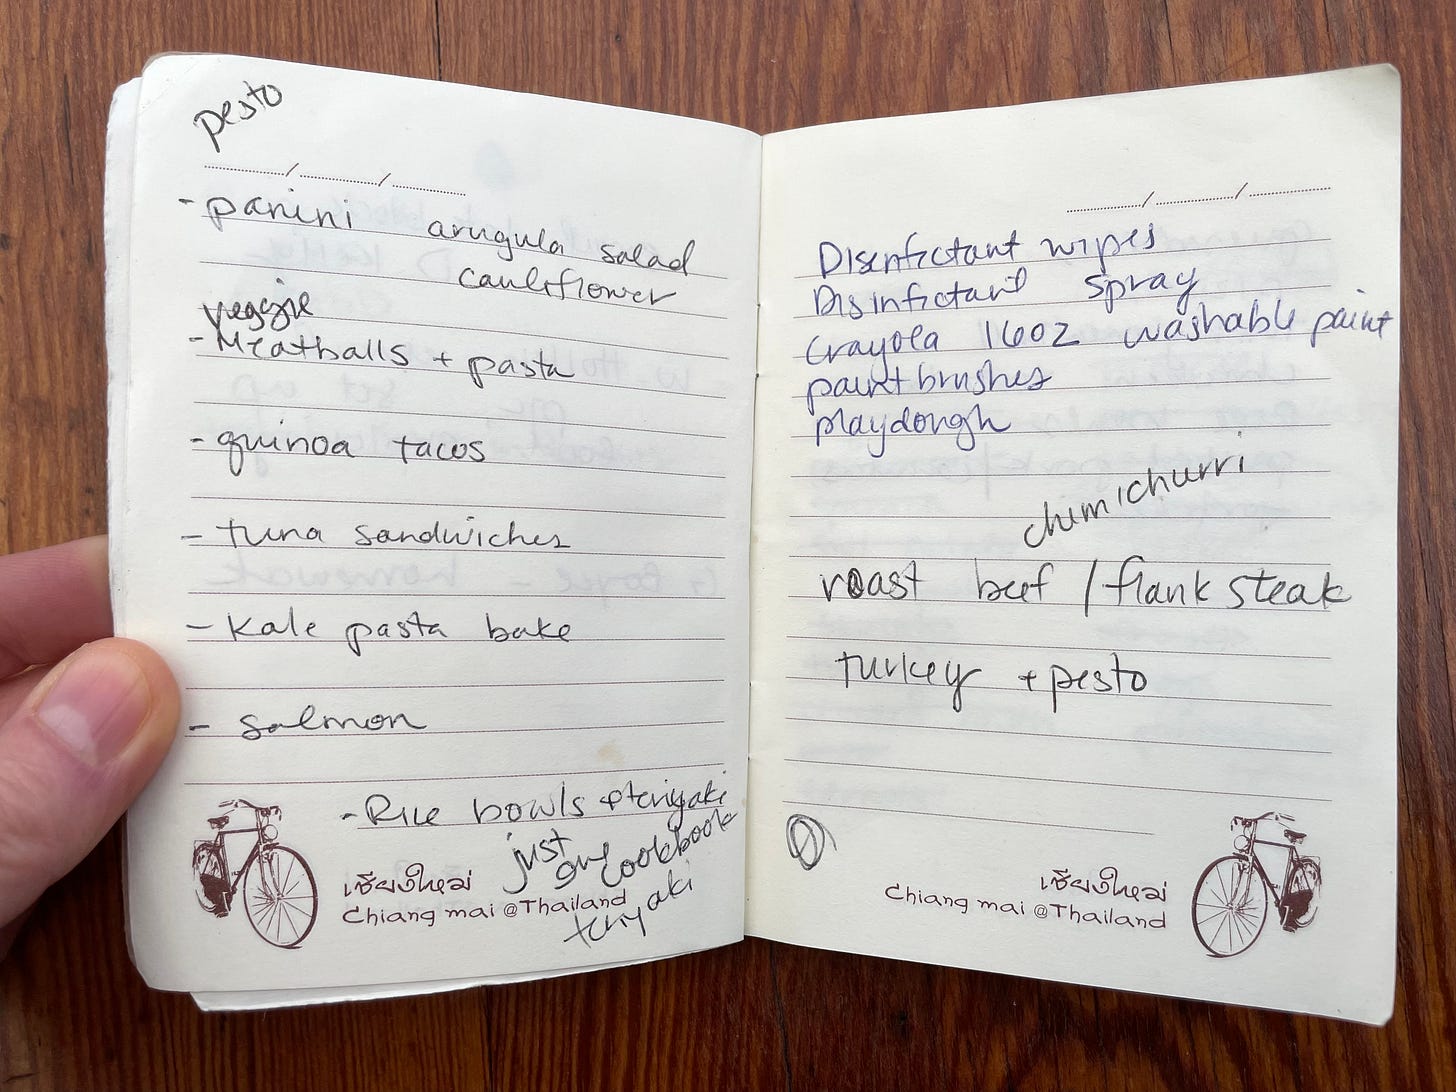 pesto
- panini arugula salad
cauliflower
veggie
- Meatballs + pasta
- quinoa tacos
- tuna sandwiches
- Kale pasta bake
- salmon
- Rice bowls + teriyaki
just one cookbook
teriyaki
เชียงใหม่
Chiang mai @Thailand
Disenfictant wipes
Disinfictant spray
Crayola 16oz washable paint
paintbrushes
playdough
chimichurri
roast beef / flank steak
turkey + pesto
เชียงใหม่
Chiang mai @Thailand